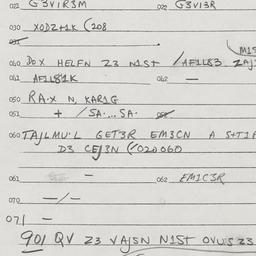 021 G3VIR3M 022 G3VI3R
030 XODZ+1K (208
031
060 DOX HELFN Z3 N1ST / AF1L83. ZAJ
M1S
061 AF1L81K 062 —
050 RA-X N, KAR1G
051 + /SA-...SA-
060 TAJLMU'L GET3R EM3CN A S+T1F
D3 CEJ3N (/020060
061 – 062 EM1C3R
070 —/—
071 —
901 QV Z3 VAJSN N1ST OVUS Z3